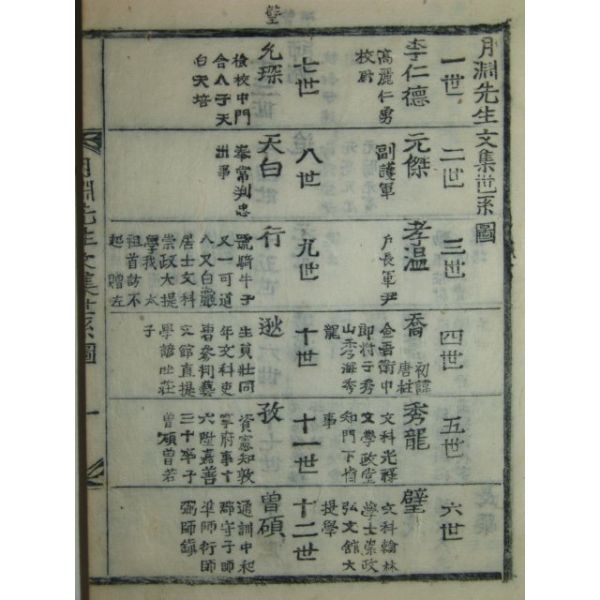 月淵先生文集世系圖
一世
李仁德
高麗仁勇
校尉
二世
元傑
副護軍
三世
孝温
戶長軍尹
四世
喬
初諱
唐柱
金吾衛中
郎將子秀
山秀海秀
龍
五世
秀龍
文科光祿
文學政堂
知門下省
事
六世
璧
文科翰林
學士崇政
弘文館大
提學
七世
允琛
檢校中門
令八子天
白天培
八世
天白
奉常判忠
州事
九世
行
號騎牛子
又一可道
人又白巖
居士文科
崇政大提
學我太
祖首訪不
起贈左
十世
逖
生員壯同
年文科吏
曹參判藝
文館直提
學諡
子
十一世
孜
資憲知敦
寧府事十
六陞嘉善
三十卒子
曾碩曾若
十二世
曾碩
通訓中和
郡守子師
準師衍師
弼師鎭
月淵先生文集世系圖
一